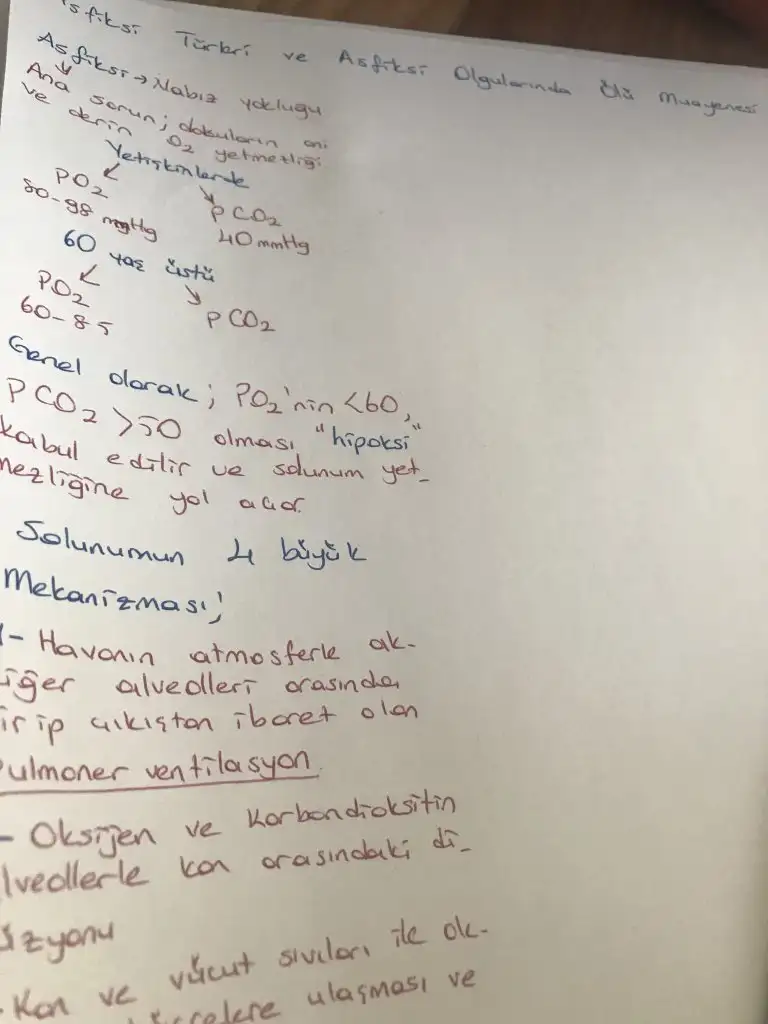 sfiksi Türleri ve Asfiksi Olgularında Ölü Muayenesi
Asfiksi → Nabız yokluğu
Ana sorun; dokuların ani
ve derin O2 yetmezliği
Yetişkinlerde
PO2
80-98 mmHg
PCO2
40 mmHg
60 yaş üstü
PO2
60-85
PCO2
Genel olarak; PO2'nin <60,
PCO2 >50 olması "hipoksi"
kabul edilir ve solunum yet-
mezliğine yol açar.
Solunumun 4 büyük
Mekanizması;
1- Havanın atmosferle ak-
iğer alveolleri arasında
ir ip çıkıştan ibaret olan
Pulmoner ventilasyon.
- Oksijen ve Karbondioksitin
lveollerle kan arasındaki di-
üzyonu
- Kan ve vücut sıvıları ile ok-
ulaşması ve